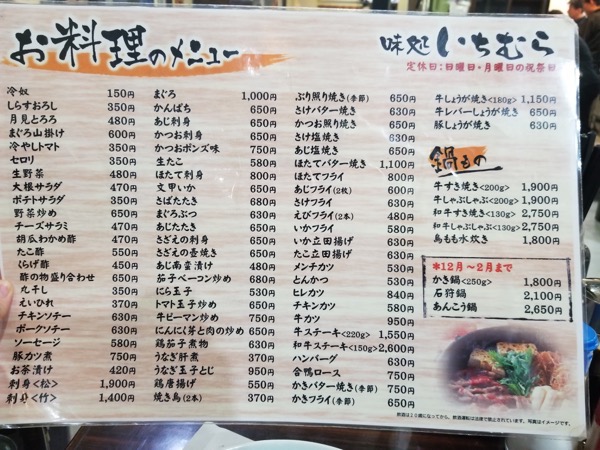 お料理のメニュー
味処 いちむら
定休日：日曜日・月曜日の祝祭日
冷奴 150円
しらすおろし 350円
月見とろろ 480円
まぐろ山掛け 600円
冷やしトマト 350円
セロリ 350円
生野菜 480円
大根サラダ 470円
ポテトサラダ 350円
野菜炒め 650円
チーズサラミ 470円
胡瓜わかめ酢 470円
たこ酢 550円
くらげ酢 450円
酢の物盛り合わせ 650円
丸干し 350円
えいひれ 370円
チキンソテー 630円
ポークソテー 630円
ソーセージ 580円
豚カツ煮 750円
お茶漬け 420円
刺身<松> 1,900円
刺身<竹> 1,400円
まぐろ 1,000円
かんぱち 650円
あじ刺身 650円
かつお刺身 650円
かつおポンズ味 750円
生たこ 580円
ほたて刺身 800円
文甲いか 650円
さばたたき 680円
まぐろぶつ 630円
あじたたき 650円
さざえの刺身 650円
さざえの壺焼き 650円
あじ南蛮漬け 480円
茄子ベーコン炒め 630円
にら玉子 530円
トマト玉子炒め 650円
牛ピーマン炒め 750円
にんにく芽と肉の炒め 650円
鶏茄子煮物 630円
うなぎ肝煮 370円
うなぎ玉子とじ 950円
鶏唐揚げ 550円
焼き鳥(2本) 370円
ぶり照り焼き(季節) 650円
さけバター焼き 630円
かつお照り焼き 650円
さけ塩焼き 630円
あじ塩焼き 650円
ほたてバター焼き 1,100円
ほたてフライ 800円
あじフライ(2枚) 600円
さけフライ 630円
えびフライ(2本) 480円
いかフライ 580円
いか立田揚げ 630円
たこ立田揚げ 630円
メンチカツ 530円
とんかつ 530円
ヒレカツ 840円
チキンカツ 580円
牛カツ 950円
牛ステーキ<220g> 1,550円
和牛ステーキ<150g> 2,600円
ハンバーグ 630円
合鴨ロース 750円
かきバター焼き(季節) 650円
かきフライ(季節) 650円
牛しょうが焼き<180g> 1,150円
牛レバーしょうが焼き 650円
豚しょうが焼き 630円
鍋もの
牛すき焼き<200g> 1,900円
牛しゃぶしゃぶ<200g> 1,900円
和牛すき焼き<130g> 2,750円
和牛しゃぶしゃぶ<130g> 2,750円
鳥もも水炊き 1,800円
＊12月～2月まで
かき鍋<250g> 1,800円
石狩鍋 2,100円
あんこう鍋 2,650円
飲酒は20歳になってから。飲酒運転は法律で禁止されています。写真はイメージです。